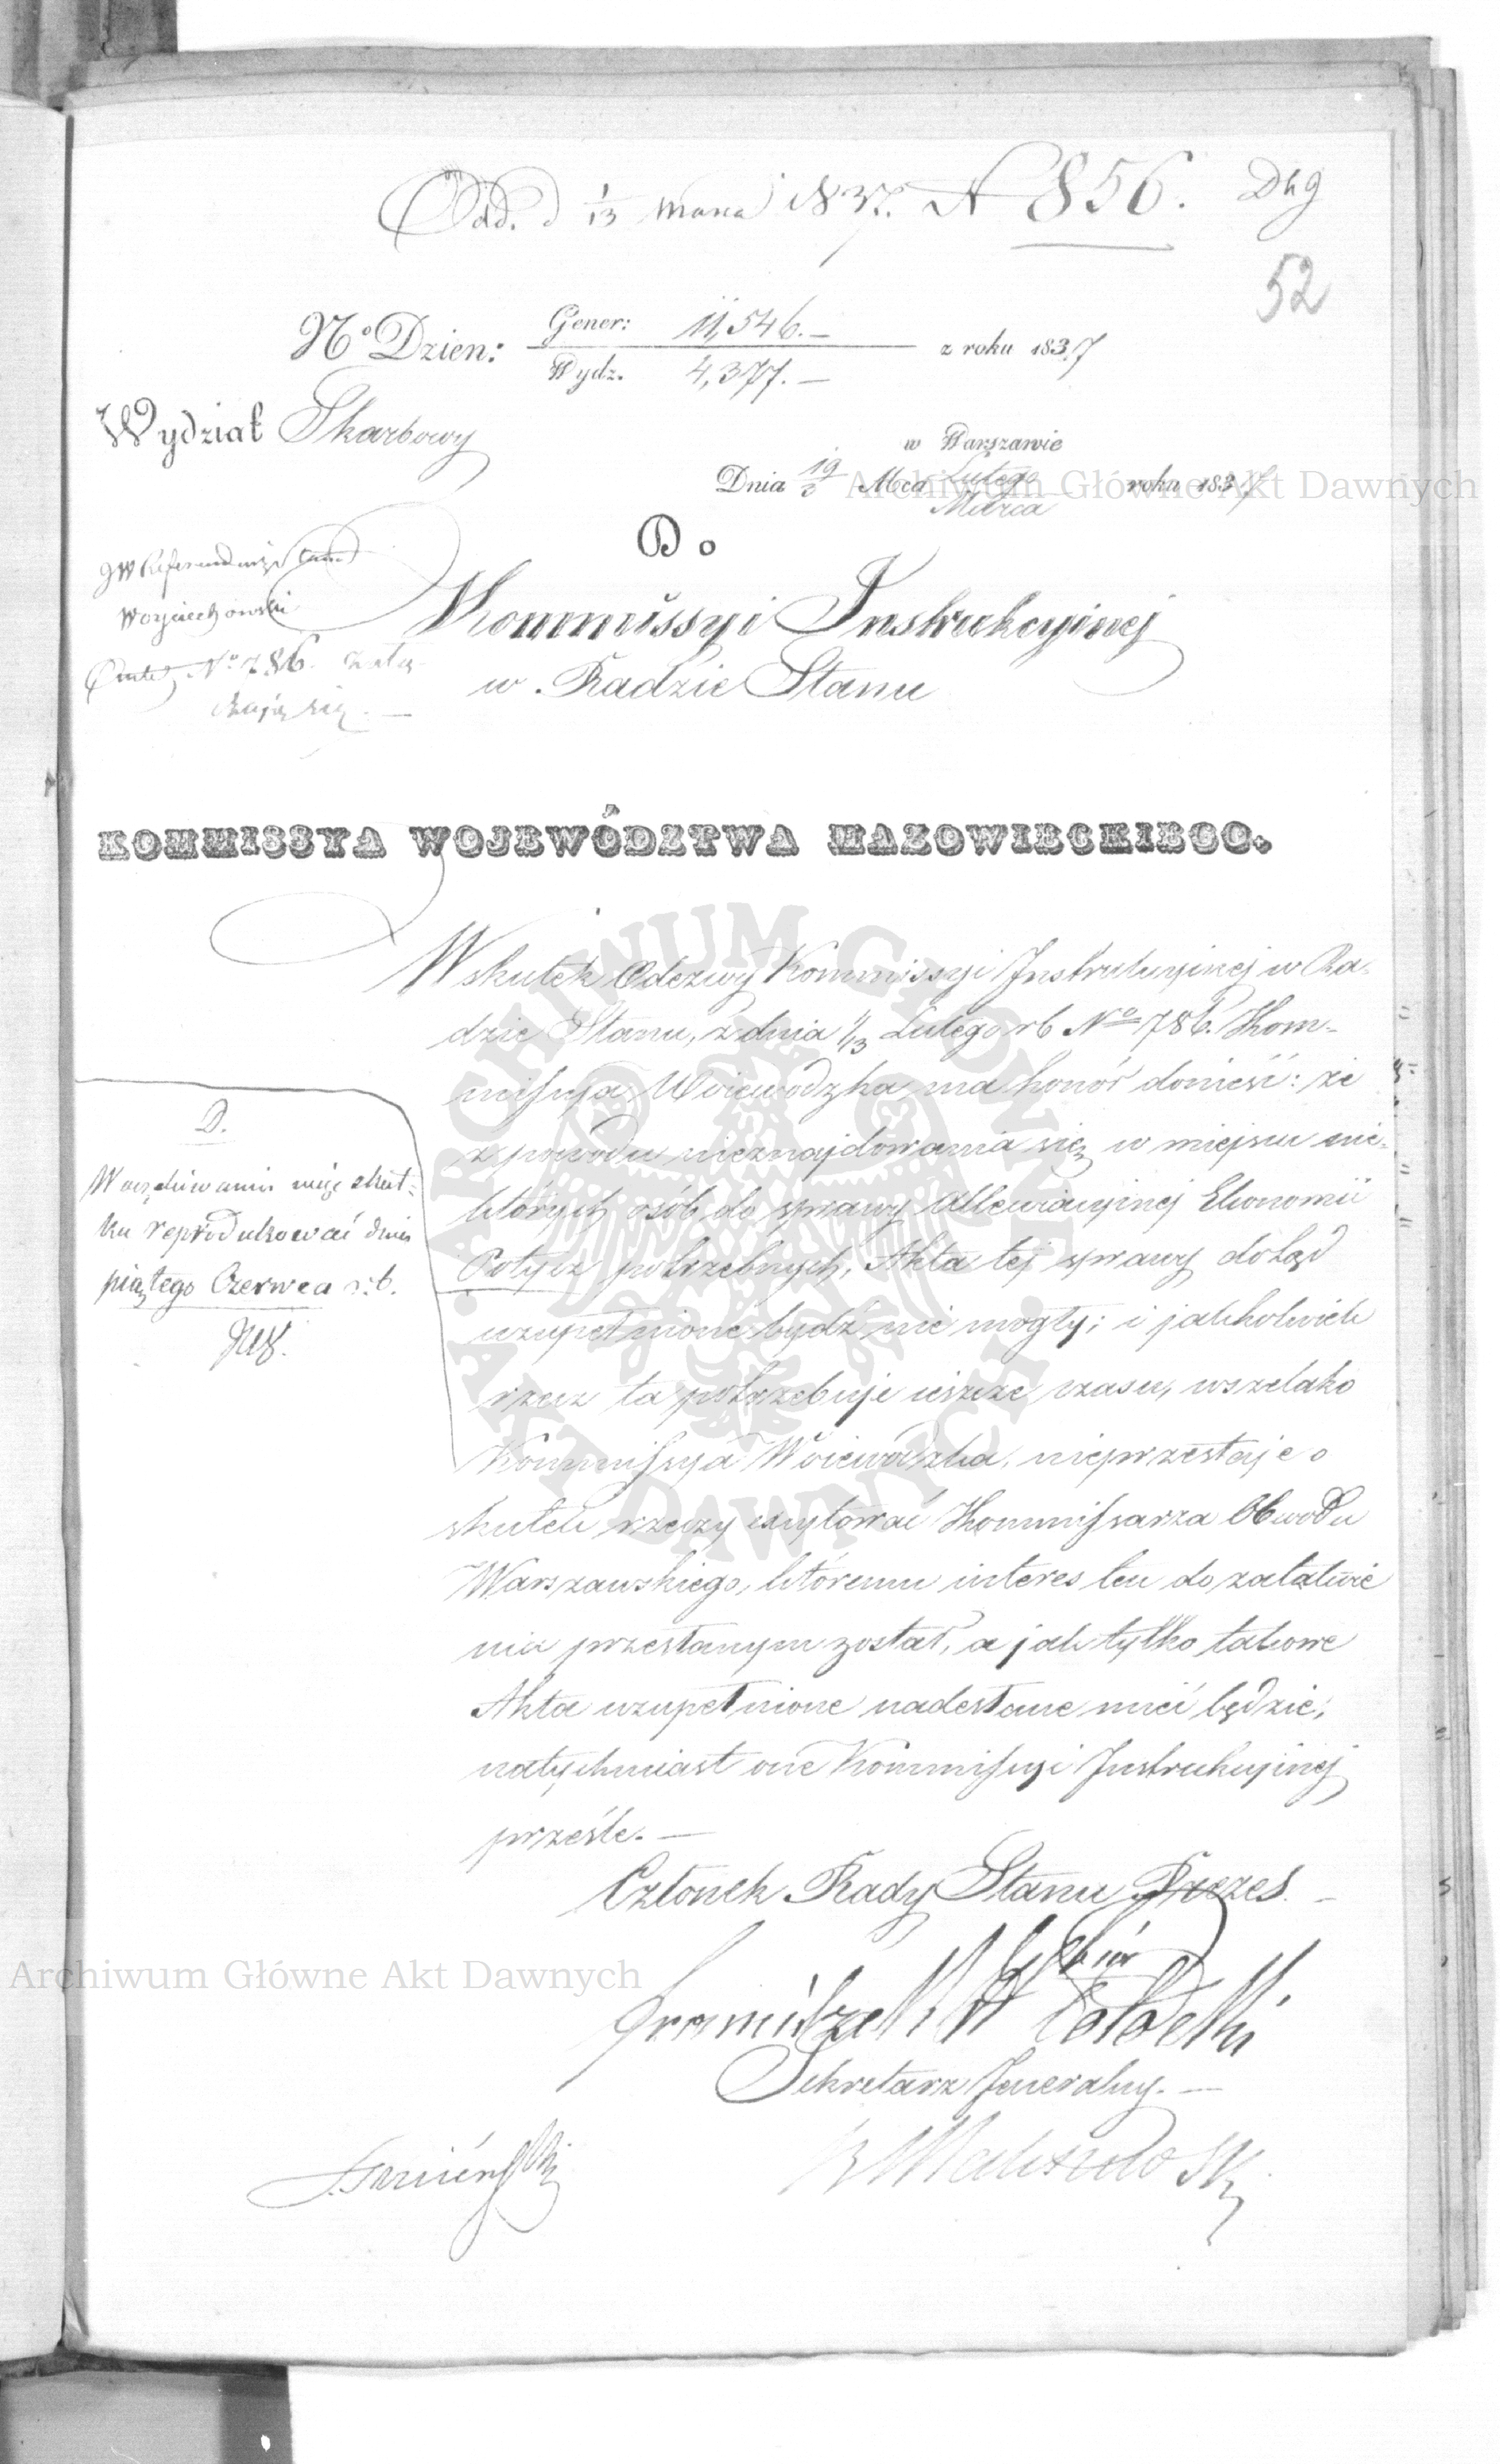 Odd. d 1/13 Marca 1837. N 856.
52
No Dzien: Gener: 11,546.—
Wydz. 4,377.— z roku 1837
Wydział Skarbowy
w Warszawie
Dnia 19/2 Mca Lutego/Marca roku 1837
Do
Kommissyi Instrukcyinej
w Radzie Stanu
JW Referendarz Stanu
Woyciechowski
No 786.
KOMMISSYA WOJEWÓDZTWA MAZOWIECKIEGO.
Wskutek Odezwy Kommissyi Instrukcyinej w Ra-
dzie Stanu, z dnia 1/13 Lutego rb No 786. Kom-
missya Woiewódzka ma honor donieść: że
z powodu nieznajdowania się w miejscu nie-
których osób do sprawy Allewiacyinej Ekonomii
Potycz potrzebnych, Akta tej sprawy dotąd
uzupełnione bydź nie mogły; i jakkolwiek
rzecz ta potrzebuje ieszcze czasu, wszelako
Kommissya Woiewódzka, nieprzestaje o
skutek rzeczy excytować Kommissarza Obwodu
Warszawskiego, któremu interes ten do załatwie
nia przesłanym został, a jak tylko takowe
Akta uzupełnione nadesłane mieć będzie,
natychmiast one Kommissyi Instrukcyinej
prześle.—
D.
W oczekiwaniu więc skut-
ku reprodukować dnia
piątego Czerwca r.b.
Członek Rady Stanu Prezes
Sekretarz Jeneralny.—
Archiwum Główne Akt Dawnych
Archiwum Główne Akt Dawnych
ARCHIWUM GŁÓWNE
AKT DAWNYCH